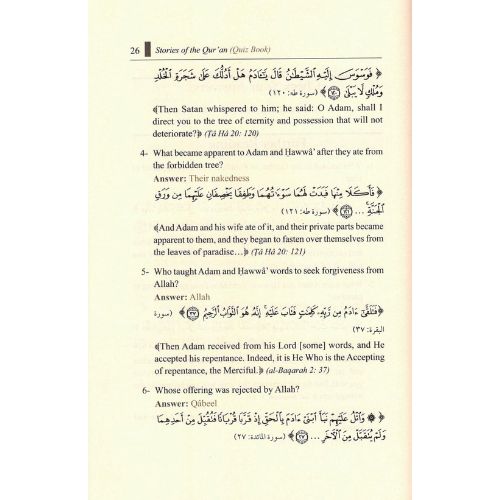 26 Stories of the Qur'an (Quiz Book)
﴿ فَوَسْوَسَ إِلَيْهِ الشَّيْطَٰنُ قَالَ يَٰٓـَٔادَمُ هَلْ أَدُلُّكَ عَلَىٰ شَجَرَةِ الْخُلْدِ
وَمُلْكٍ لَّا يَبْلَىٰ ﴿١٢٠﴾ ﴾ (سورة طه: ١٢٠)
﴾Then Satan whispered to him; he said: O Adam, shall I
direct you to the tree of eternity and possession that will not
deteriorate?﴿ (Ṭâ Hâ 20: 120)
4- What became apparent to Adam and Ḥawwâ' after they ate from
the forbidden tree?
Answer: Their nakedness
﴿ فَأَكَلَا مِنْهَا فَبَدَتْ لَهُمَا سَوْءَٰتُهُمَا وَطَفِقَا يَخْصِفَانِ عَلَيْهِمَا مِن وَرَقِ
الْجَنَّةِ ... ﴿١٢١﴾ ﴾ (سورة طه: ١٢١)
﴾And Adam and his wife ate of it, and their private parts became
apparent to them, and they began to fasten over themselves from
the leaves of paradise...﴿ (Ṭâ Hâ 20: 121)
5- Who taught Adam and Ḥawwâ' words to seek forgiveness from
Allah?
Answer: Allah
﴿ فَتَلَقَّىٰٓ ءَادَمُ مِن رَّبِّهِۦ كَلِمَٰتٍ فَتَابَ عَلَيْهِ إِنَّهُۥ هُوَ التَّوَّابُ الرَّحِيمُ ﴿٣٧﴾ ﴾ (سورة
البقرة: ٣٧)
﴾Then Adam received from his Lord [some] words, and He
accepted his repentance. Indeed, it is He Who is the Accepting
of repentance, the Merciful.﴿ (al-Baqarah 2: 37)
6- Whose offering was rejected by Allah?
Answer: Qâbeel
﴿ ۞ وَاتْلُ عَلَيْهِمْ نَبَأَ ابْنَيْ ءَادَمَ بِالْحَقِّ إِذْ قَرَّبَا قُرْبَانًا فَتُقُبِّلَ مِنْ أَحَدِهِمَا
وَلَمْ يُتَقَبَّلْ مِنَ الْءَاخَرِ ... ﴿٢٧﴾ ﴾ (سورة المائدة: ٢٧)